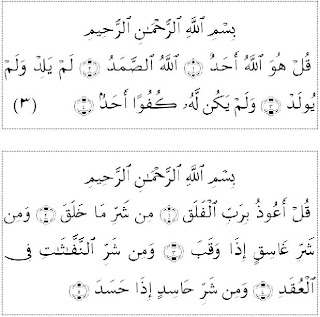 بِسْمِ ٱللَّهِ ٱلرَّحْمَـٰنِ ٱلرَّحِيمِ
قُلْ هُوَ ٱللَّهُ أَحَدٌ ۝١ ٱللَّهُ ٱلصَّمَدُ ۝٢ لَمْ يَلِدْ وَلَمْ
يُولَدْ ۝٣ وَلَمْ يَكُن لَّهُۥ كُفُوًا أَحَدٌۢ ۝٤ (٣)
بِسْمِ ٱللَّهِ ٱلرَّحْمَـٰنِ ٱلرَّحِيمِ
قُلْ أَعُوذُ بِرَبِّ ٱلْفَلَقِ ۝١ مِن شَرِّ مَا خَلَقَ ۝٢ وَمِن
شَرِّ غَاسِقٍ إِذَا وَقَبَ ۝٣ وَمِن شَرِّ ٱلنَّفَّـٰثَـٰتِ فِى
ٱلْعُقَدِ ۝٤ وَمِن شَرِّ حَاسِدٍ إِذَا حَسَدَ ۝٥